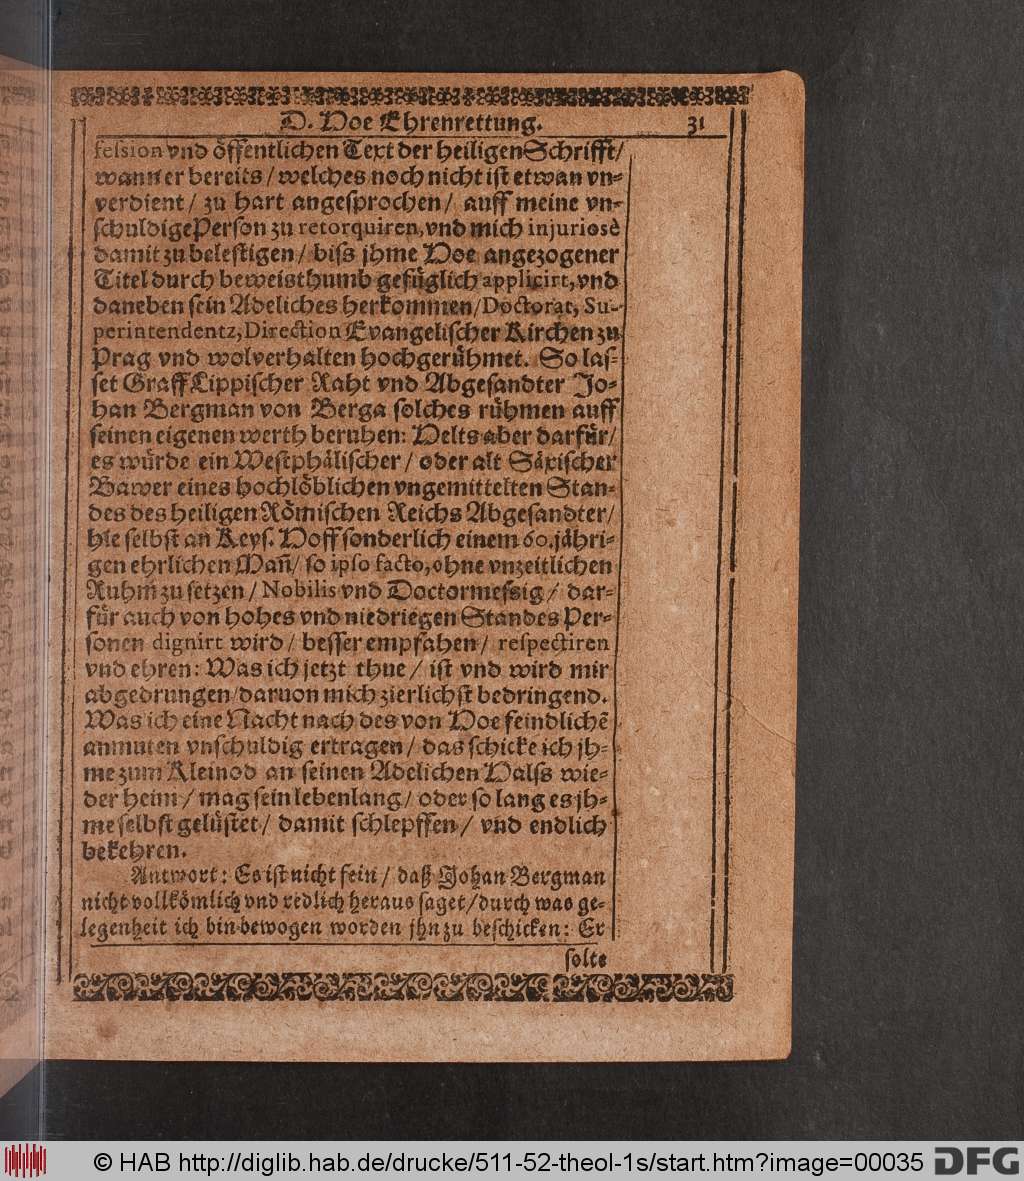 D. Hoe Ehrenrettung. 31
fession vnd öffentlichen Text der heiligen Schrifft/
wann er bereits/ welches noch nicht ist etwan vn-
verdient/ zu hart angesprochen/ auff meine vn-
schuldige Person zu retorquiren, vnd mich injuriosè
damit zu belestigen/ biss jhme Hoe angezogener
Titel durch beweisthumb gefüglich applicirt, vnd
daneben sein Adeliches herkommen/ Doctorat, Su-
perintendentz, Direction Evangelischer Kirchen zu
Prag vnd wolverhalten hochgerühmet. So las-
set Graff Lippischer Raht vnd Abgesandter Jo-
han Bergman von Berga solches rühmen auff
seinen eigenen werth beruhen: Helts aber darfür/
es würde ein Westphälischer/ oder alt Säxischer
Bawer eines hochlöblichen vngemittelten Stan-
des des heiligen Römischen Reichs Abgesandter/
hie selbst an Keys. Hoff sonderlich einem 60. jähri-
gen ehrlichen Man̄/ so ipso facto, ohne vnzeitlichen
Ruhm zu setzen/ Nobilis vnd Doctormessig/ dar-
für auch von hohes vnd niedriegen Standes Per-
sonen dignirt wird/ besser empfahen/ respectiren
vnd ehren: Was ich jetzt thue/ ist vnd wird mir
abgedrungen/ daruon mich zierlichst bedringend.
Was ich eine Nacht nach des von Hoe feindlichē
anmuten vnschuldig ertragen/ das schicke ich jh-
me zum Kleinod an seinen Adelichen Halss wie-
der heim/ mag sein lebenlang/ oder so lang es jh-
me selbst gelüstet/ damit schlepffen/ vnd endlich
bekehren.
Antwort: Es ist nicht fein/ daß Johan Bergman
nicht vollkömlich vnd redlich heraus saget/ durch was ge-
legenheit ich bin bewogen worden jhn zu beschicken: Er
solte
© HAB http://diglib.hab.de/drucke/511-52-theol-1s/start.htm?image=00035 DFG